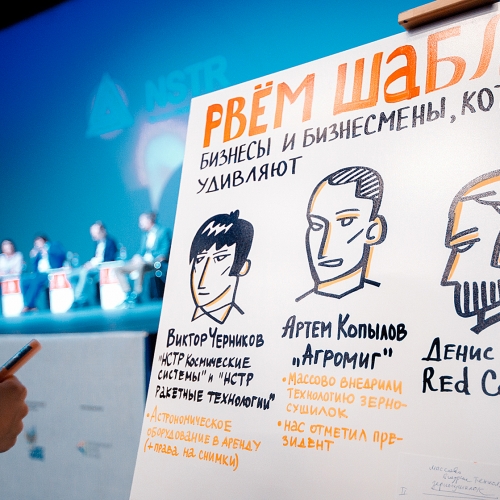 NSTR
РВЁМ ШАБЛ
БИЗНЕСЫ И БИЗНЕСМЕНЫ, КОТ
УДИВЛЯЮТ
ВИКТОР ЧЕРНИКОВ
"НСТР КОСМИЧЕСКИЕ
СИСТЕМЫ" И "НСТР
РАКЕТНЫЕ ТЕХНОЛОГИИ"
• АСТРОНОМИЧЕСКОЕ
ОБОРУДОВАНИЕ В АРЕНДУ
(+ПРАВА НА СНИМКИ)
АРТЕМ КОПЫЛОВ
„АГРОМИГ"
• МАССОВО ВНЕДРИЛИ
ТЕХНОЛОГИЮ ЗЕРНО-
СУШИЛОК
• НАС ОТМЕТИЛ ПРЕ-
ЗИДЕНТ
ДЕНИС
RED C